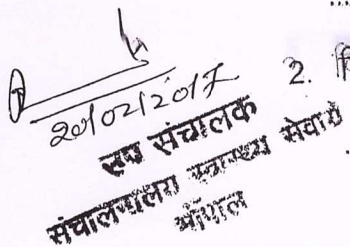 20/02/2017
2.
उप संचालक
संचालनालय स्वास्थ्य सेवायें
भोपाल